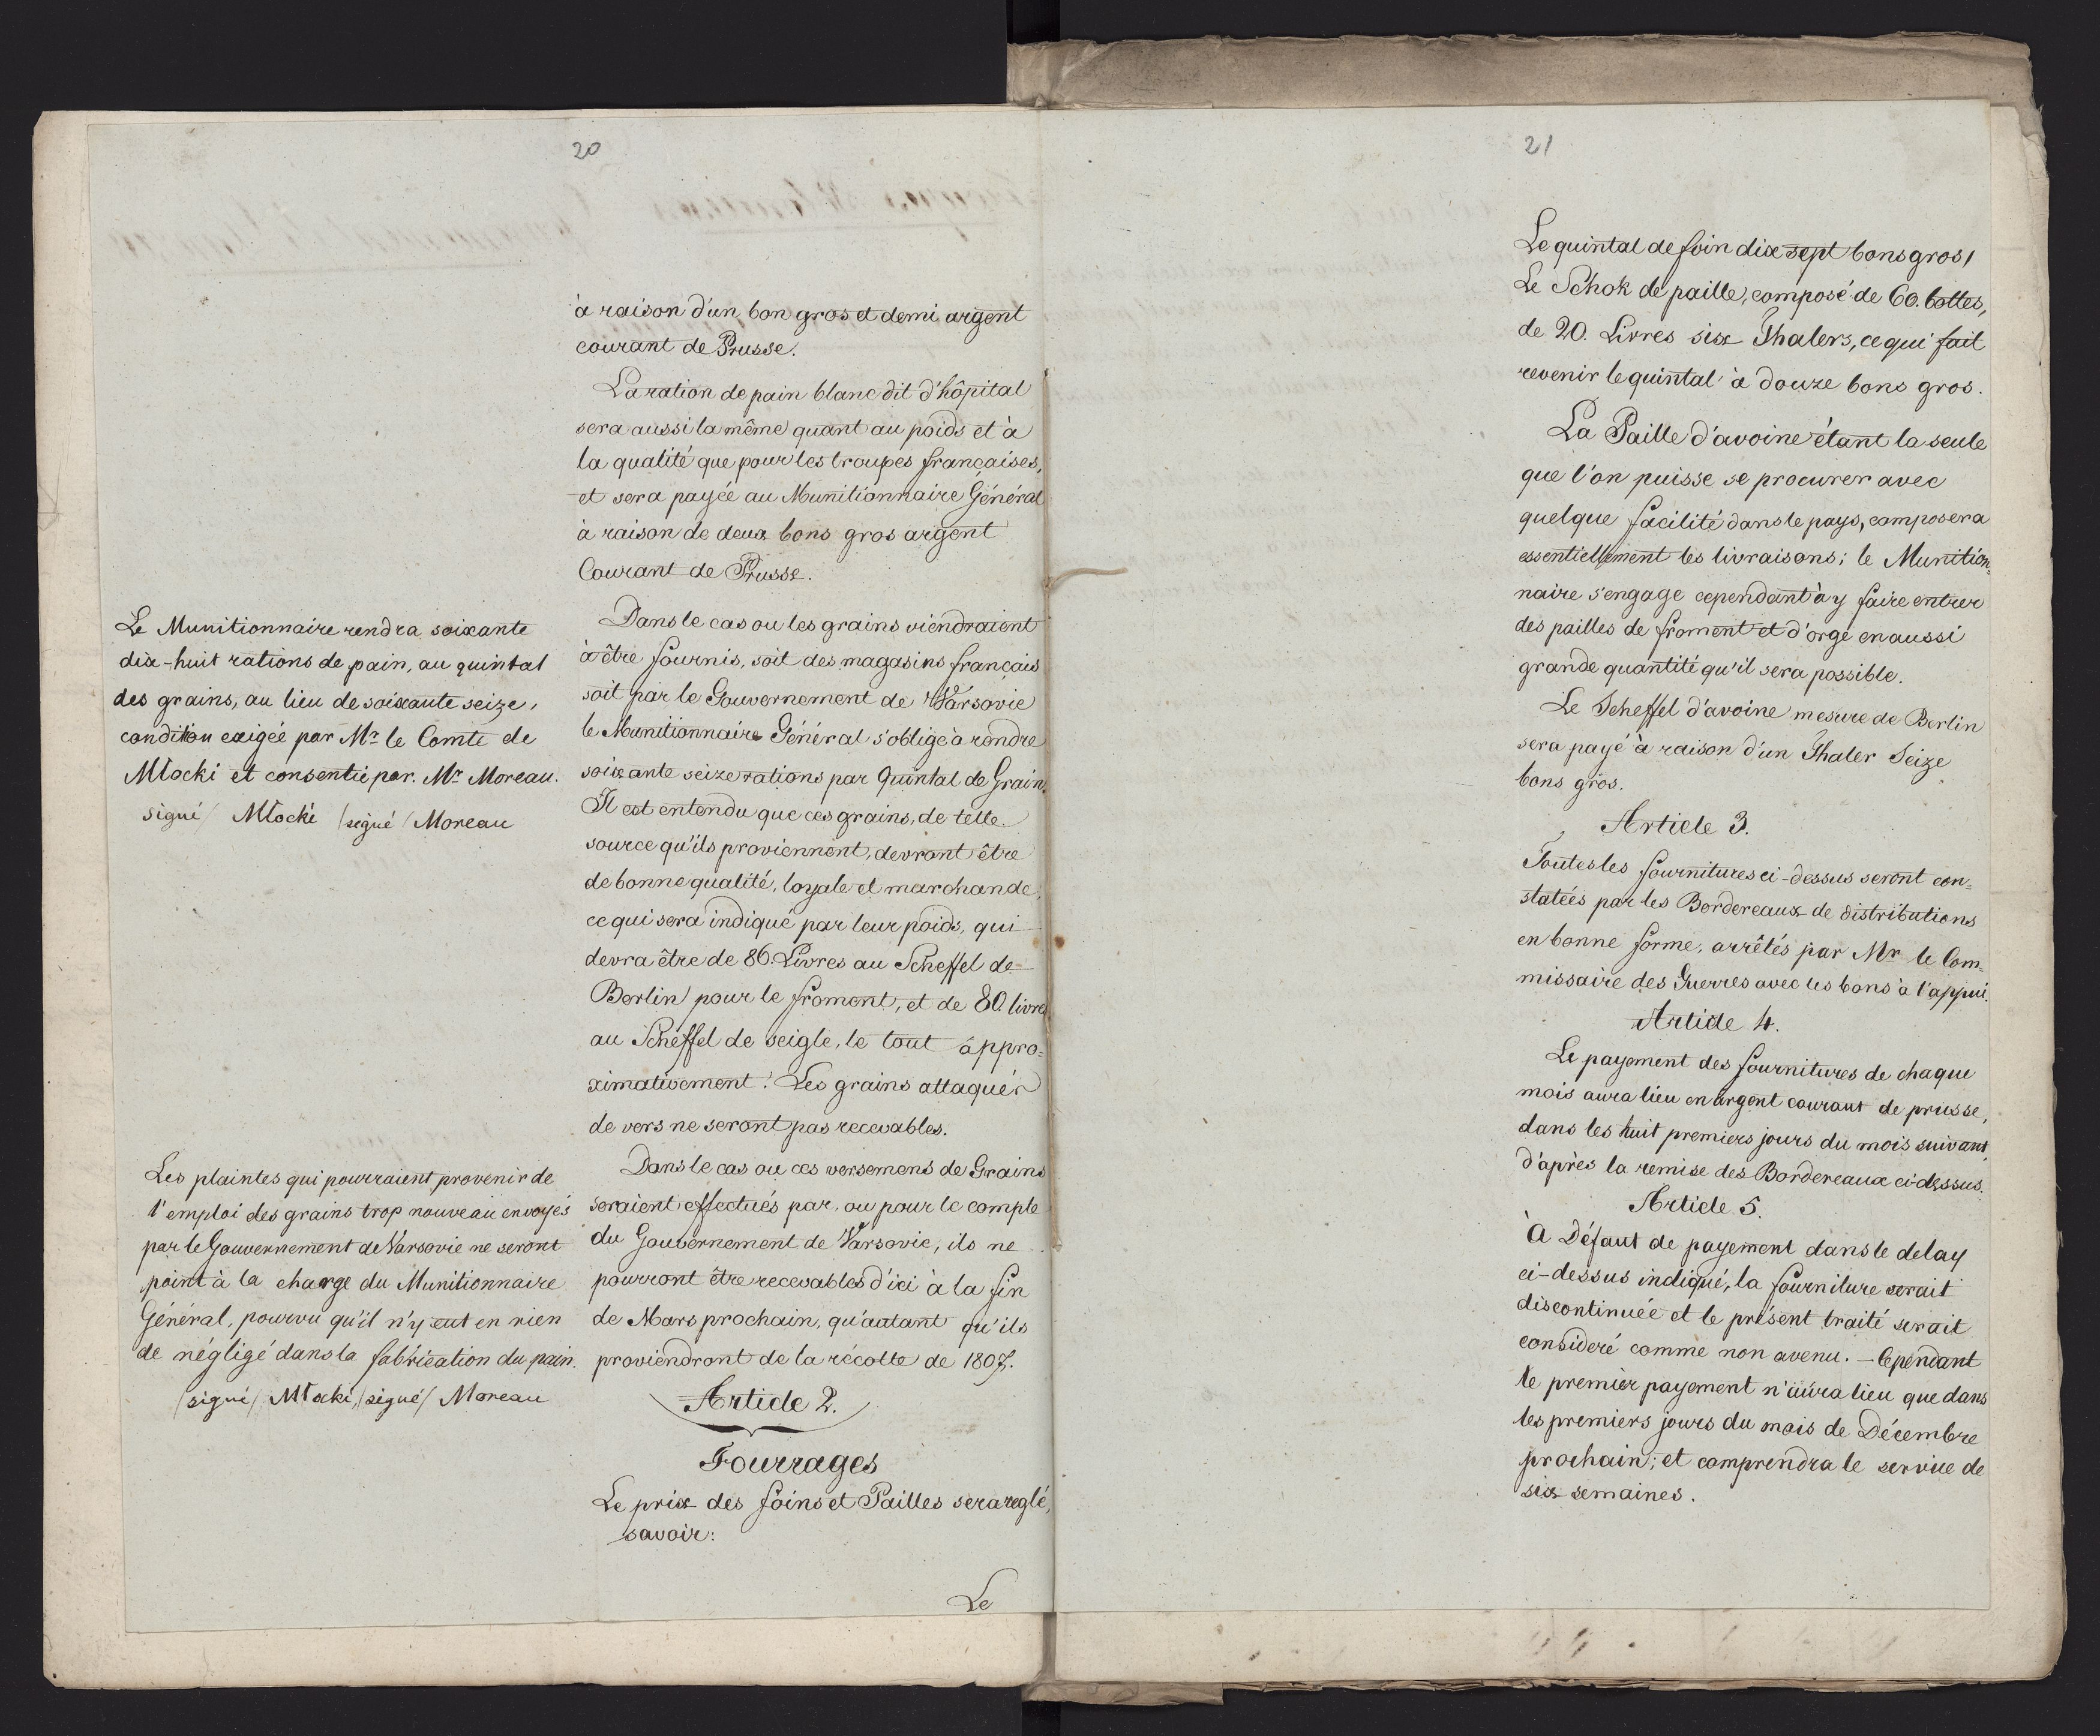 20
à raison d'un bon gros et demi argent
courant de Prusse.
La ration de pain blanc dit d'hôpital
sera aussi la même quant au poids et à
la qualité que pour les troupes françaises,
et sera payée au Munitionnaire Général
à raison de deux bons gros argent
Courant de Prusse.
Dans le cas ou les grains viendraient
à être fournis, soit des magasins français
soit par le Gouvernement de Varsovie
le Munitionnaire Général s'oblige à rendre
soixante seize rations par Quintal de Grain.
Il est entendu que ces grains, de telle
source qu'ils proviennent, devront être
de bonne qualité, loyale et marchande,
ce qui sera indiqué par leur poids, qui
devra être de 86. Livres au Scheffel de
Berlin pour le froment, et de 80. livres
au Scheffel de seigle, le tout appro=
ximativement. Les grains attaqués
de vers ne seront pas recevables.
Dans le cas ou ces versemens de Grains
seraient effectués par, ou pour le compte
du Gouvernement de Varsovie, ils ne
pourront être recevables d'ici à la fin
de Mars prochain, qu'autant qu'ils
proviendront de la récolte de 1807.
Article 2.
Fourrages
Le prix des foins et Pailles sera reglé,
savoir:
Le
Le Munitionnaire rendra soixante
dix-huit rations de pain, au quintal
des grains, au lieu de soixante seize,
condition exigée par Mr le Comte de
Młocki et consentie par Mr Moreau.
signé/ Młocki /signé/ Moreau
Les plaintes qui pourraient provenir de
l'emploi des grains trop nouveau envoyés
par le Gouvernement de Varsovie ne seront
point à la charge du Munitionnaire
Général, pourvu qu'il n'y eut en rien
de négligé dans la fabrication du pain.
/signé/ Młocki, /signé/ Moreau
21
Le quintal de foin dix sept bons gros,
Le Schok de paille, composé de 60. bottes,
de 20. Livres six Thalers, ce qui fait
revenir le quintal à douze bons gros.
La Paille d'avoine étant la seule
que l'on puisse se procurer avec
quelque facilité dans le pays, composera
essentiellement les livraisons; le Munition=
naire s'engage cependant à y faire entrer
des pailles de froment et d'orge en aussi
grande quantité qu'il sera possible.
Le Scheffel d'avoine mesure de Berlin
sera payé à raison d'un Thaler Seize
bons gros.
Article 3.
Toutes les fournitures ci-dessus seront con=
statéés par les Bordereaux de distributions
en bonne forme, arrêtés par Mr le Com=
missaire des Guerres avec les bons à l'appui.
Article 4.
Le payement des fournitures de chaque
mois aura lieu en argent courant de prusse,
dans les huit premiers jours du mois suivant,
d'après la remise des Bordereaux ci-dessus.
Article 5.
À Défaut de payement dans le delay
ci-dessus indiqué, la fourniture serait
discontinuée et le présent traité serait
consideré comme non avenu. – Cependant
le premier payement n'aura lieu que dans
les premiers jours du mois de Décembre
prochain; et comprendra le service de
six semaines.